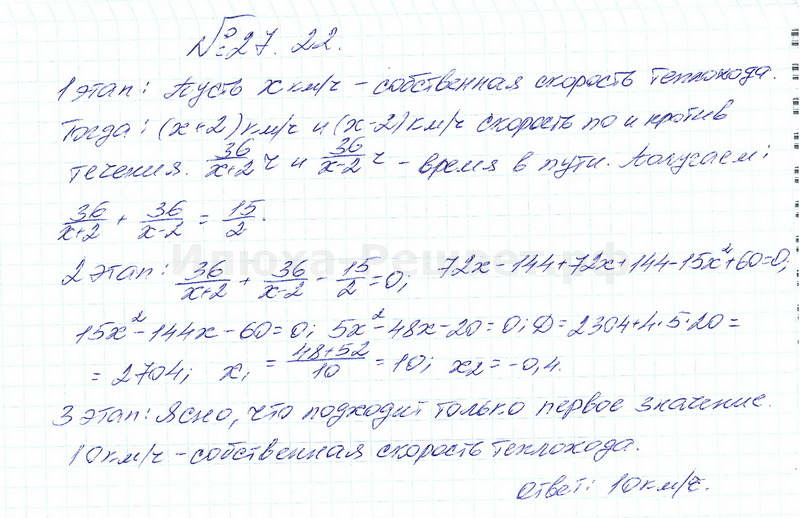 №27.22.
1 этап: Пусть x км/ч - собственная скорость теплохода.
Тогда: (x+2) км/ч и (x-2) км/ч скорость по и против
течения. 36/(x+2) ч и 36/(x-2) ч - время в пути. Получаем:
36/(x+2) + 36/(x-2) = 15/2.
2 этап: 36/(x+2) + 36/(x-2) - 15/2 = 0; 72x-144+72x+144-15x²+60=0;
15x²-144x-60=0; 5x²-48x-20=0; D=2304+4·5·20=
=2704; x₁ = (48+52)/10 = 10; x₂=-0,4.
3 этап: Ясно, что подходит только первое значение.
10 км/ч - собственная скорость теплохода.
Ответ: 10 км/ч.